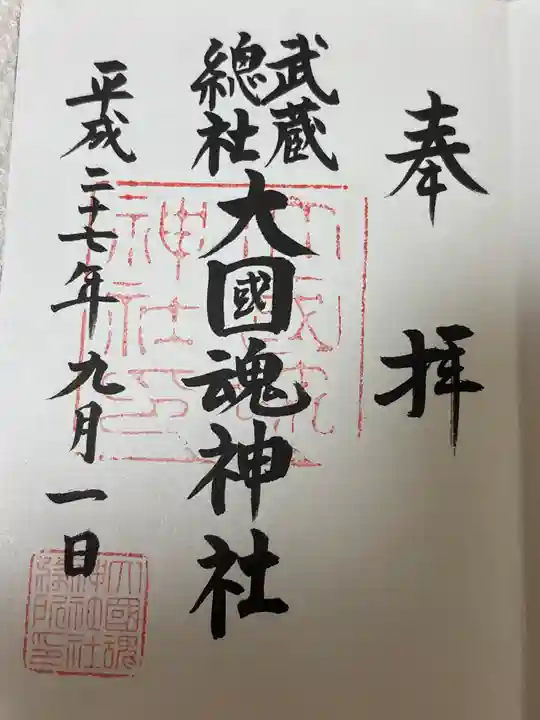 奉拝
武蔵
總社
大國魂神社
平成二十七年九月一日
大國魂
神社